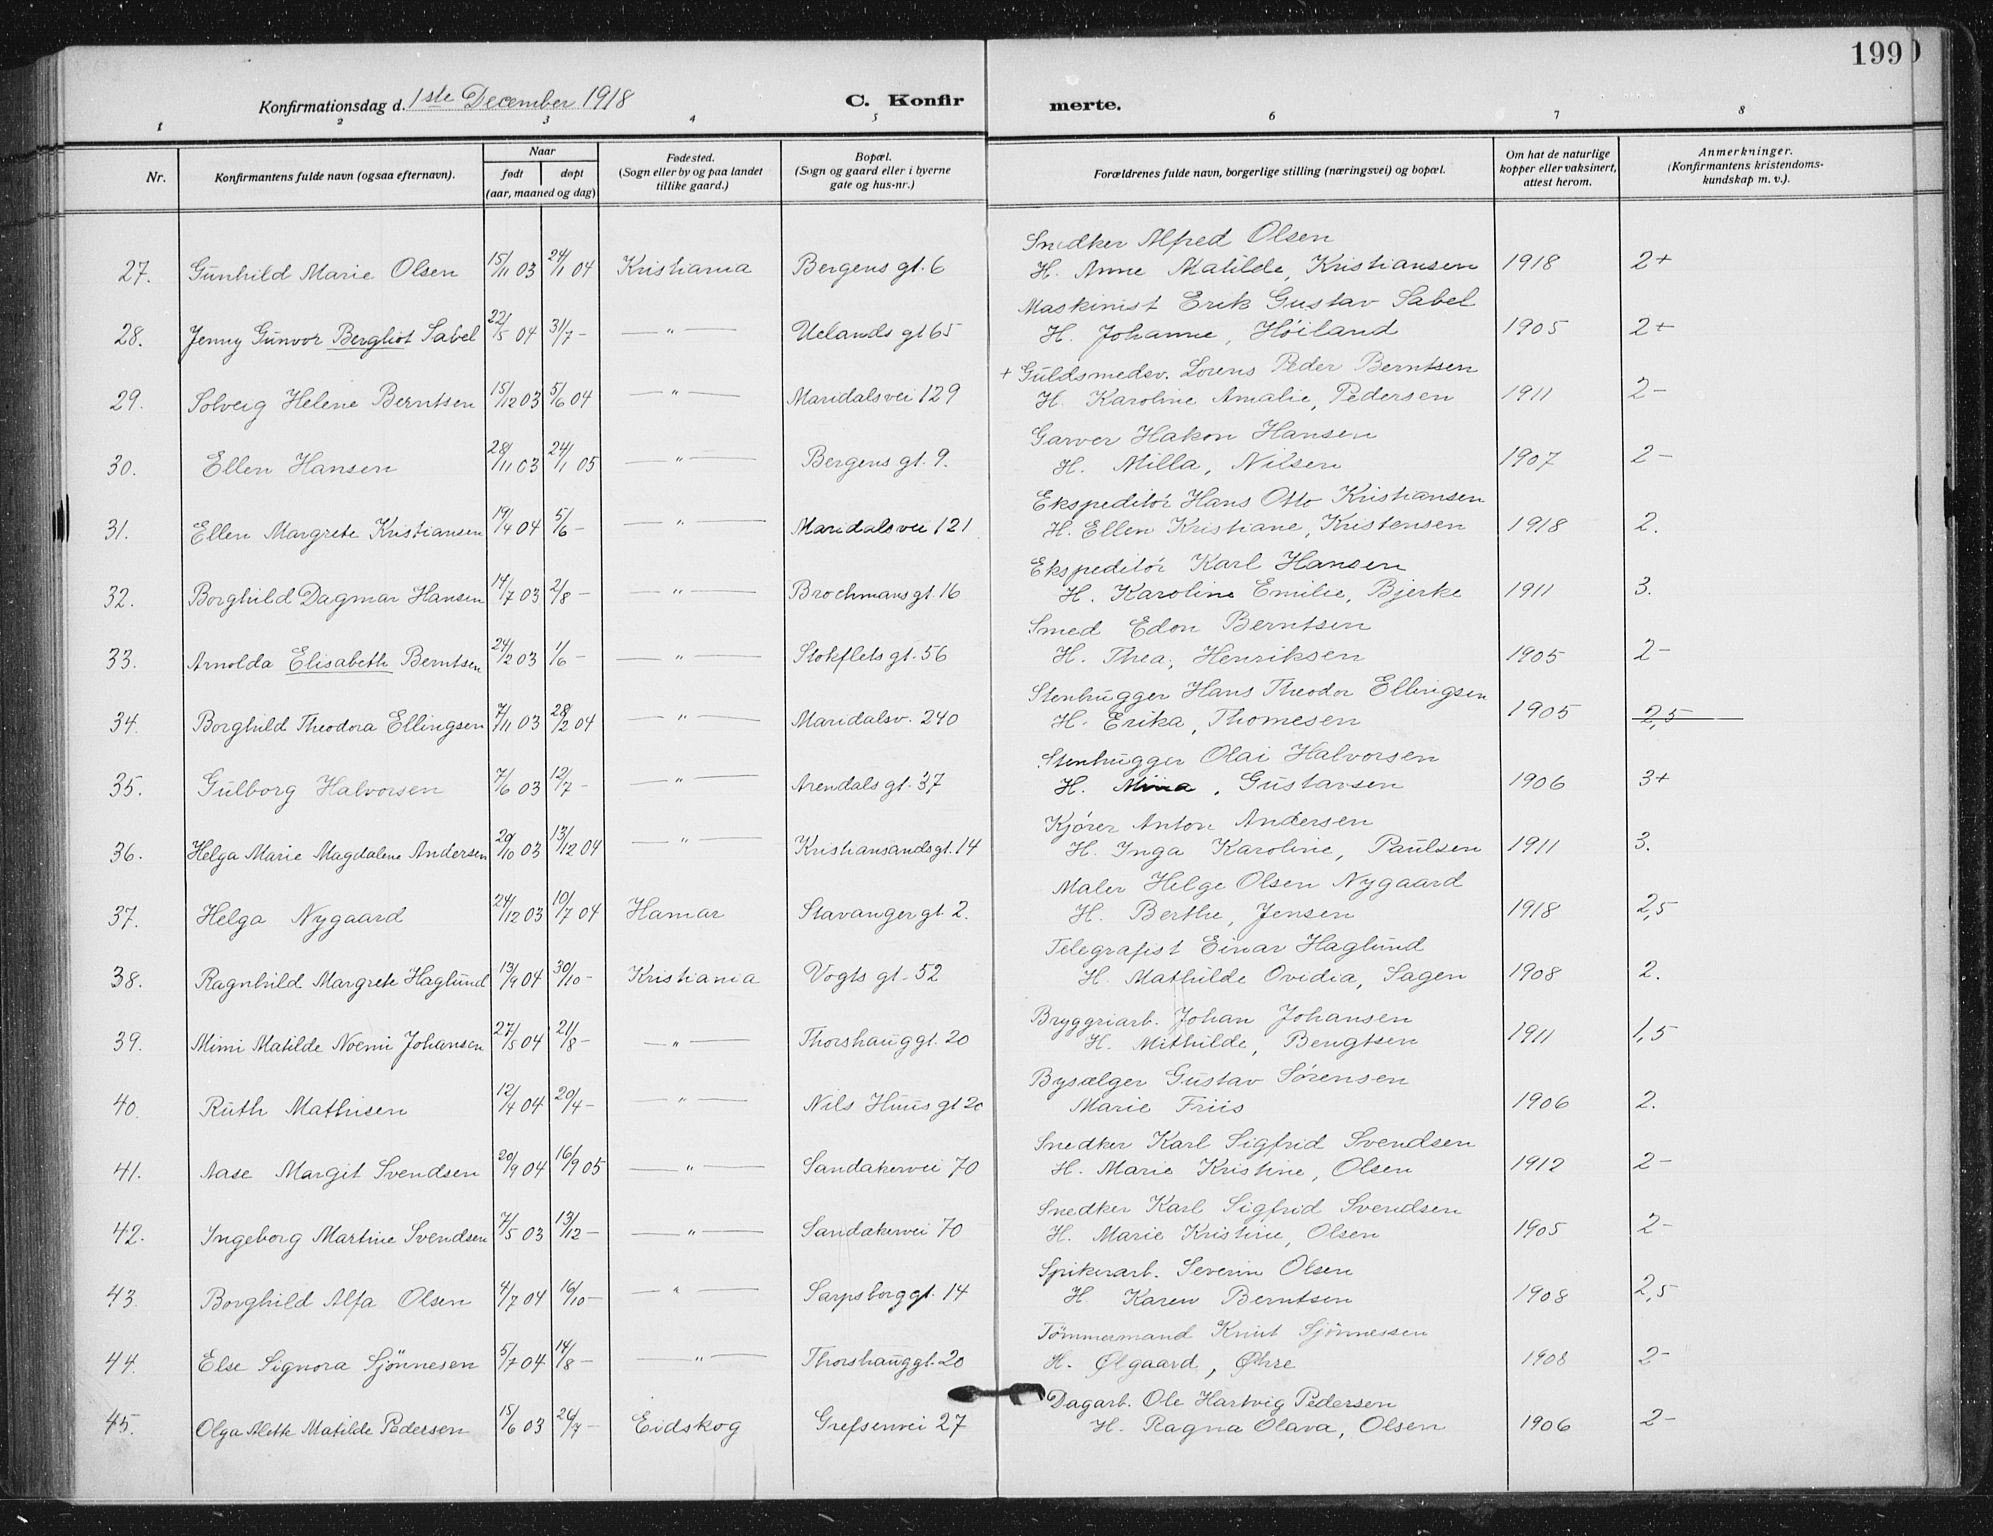 199
Konfirmationsdag d. 1ste December 1918
C. Konfir
merte.
1 2 3 4 5 6 7 8
Nr.
Konfirmantens fulde navn (ogsaa efternavn).
Naar
født
døpt
(aar, maaned og dag)
Fødested.
(Sogn eller by og paa landet
tillike gaard.)
Bopæl.
(Sogn og gaard eller i byerne
gate og hus-nr.)
Forældrenes fulde navn, borgerlige stilling (næringsvei) og bopæl.
Om hat de naturlige
kopper eller vaksinert,
attest herom.
Anmerkninger.
(Konfirmantens kristendoms-
kundskap m. v.).
Snedker Alfred Olsen
27. Gunhild Marie Olsen 15/11 03 24/1 04 Kristiania Bergens gt. 6 H. Anne Matilde, Kristiansen 1918 2+
Maskinist Erik Gustav Sabel
28. Jenny Gunvor Bergliot Sabel 22/5 04 31/7 - — " — Uelands gt 65 H. Johanne, Høiland 1905 2+
+ Guldsmedsv. Lorens Peder Berntsen
29. Solveig Helene Berntsen 15/12 03 5/6 04 — " — Maridalsvei 129 H. Karoline Amalie, Pedersen 1911 2-
Garver Hakon Hansen
30. Ellen Hansen 28/11 03 24/1 05 — " — Bergens gt. 9. H. Milla, Nilsen 1907 2-
Ekspeditør Hans Otto Kristiansen
31. Ellen Margrete Kristiansen 19/4 04 5/6 - — " — Maridalsvei 121 H. Ellen Kristiane, Kristensen 1918 2.
Ekspeditør Karl Hansen
32. Borghild Dagmar Hansen 14/7 03 2/8 - — " — Brochmans gt. 16 H. Karoline Emilie, Bjerke 1911 3.
Smed Edon Berntsen
33. Arnolda Elisabeth Berntsen 24/2 03 1/6 - — " — Stokflets gt. 56 H. Thea, Henriksen 1905 2-
Stenhugger Hans Theodor Ellingsen
34. Borghild Theodora Ellingsen 7/11 03 28/2 04 — " — Maridalsv. 240 H. Erika, Thomesen 1905 2,5
Stenhugger Olai Halvorsen
35. Gulborg Halvorsen 7/6 03 12/7 - — " — Arendals gt. 37 H. Mina, Gustavsen 1906 3+
Kjører Anton Andersen
36. Helga Marie Magdalene Andersen 20/10 03 13/12 04 — " — Kristiansands gt. 14 H. Inga Karoline, Paulsen 1911 3.
Maler Helge Olsen Nygaard
37. Helga Nygaard 24/12 03 10/7 04 Hamar Stavanger gt. 2. H. Berthe, Jensen 1918 2,5
Telegrafist Einar Haglund
38. Ragnhild Margrete Haglund 13/9 04 30/10 - Kristiania Vogts gt. 52 H. Mathilde Ovidia, Sagen 1908 2.
Bryggriarb. Johan Johansen
39. Mimi Matilde Noemi Johansen 27/5 04 21/8 - — " — Thorshauggt. 20 H. Mithilde, Bengtsen 1911 1,5
Bysælger Gustav Sørensen
40. Ruth Mathisen 12/4 04 20/4 - — " — Nils Huus gt 20 Marie Friis 1906 2.
Snedker Karl Sigfrid Svendsen
41. Aase Margit Svendsen 20/9 04 16/9 05 — " — Sandakervei 70 H. Marie Kristine, Olsen 1912 2-
Snedker Karl Sigfrid Svendsen
42. Ingeborg Martine Svendsen 7/5 03 13/12 - — " — Sandakervei 70 H. Marie Kristine, Olsen 1905 2-
Spikerarb. Severin Olsen
43. Borghild Alfa Olsen 4/7 04 16/10 - — " — Sarpsborggt. 14 H Karen Berntsen 1908 2,5
Tömmermand Knut Sjönnessen
44. Else Signora Sjönnesen 5/7 04 14/8 - — " — Thorshauggt. 20 H. Ølgaard, Øhre 1908 2-
Dagarb. Ole Hartvig Pedersen
45. Olga Alette Matilde Pedersen 15/6 03 26/7 - Eidskog Grefsenvei 27 H. Ragna Olava, Olsen 1906 2-